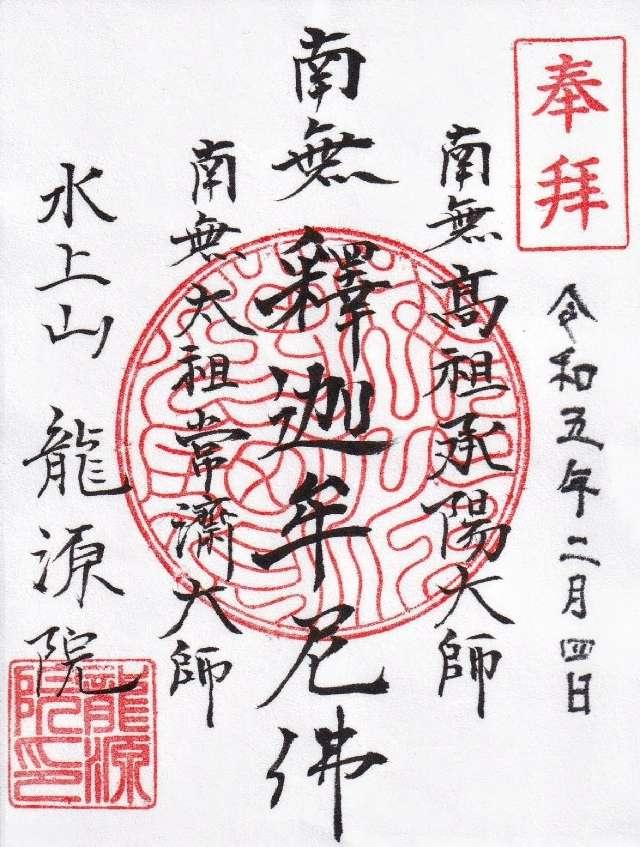 奉拝
令和五年二月四日
南無高祖承陽大師
南無釋迦牟尼佛
南無太祖常濟大師
水上山 龍源院
龍源
院印